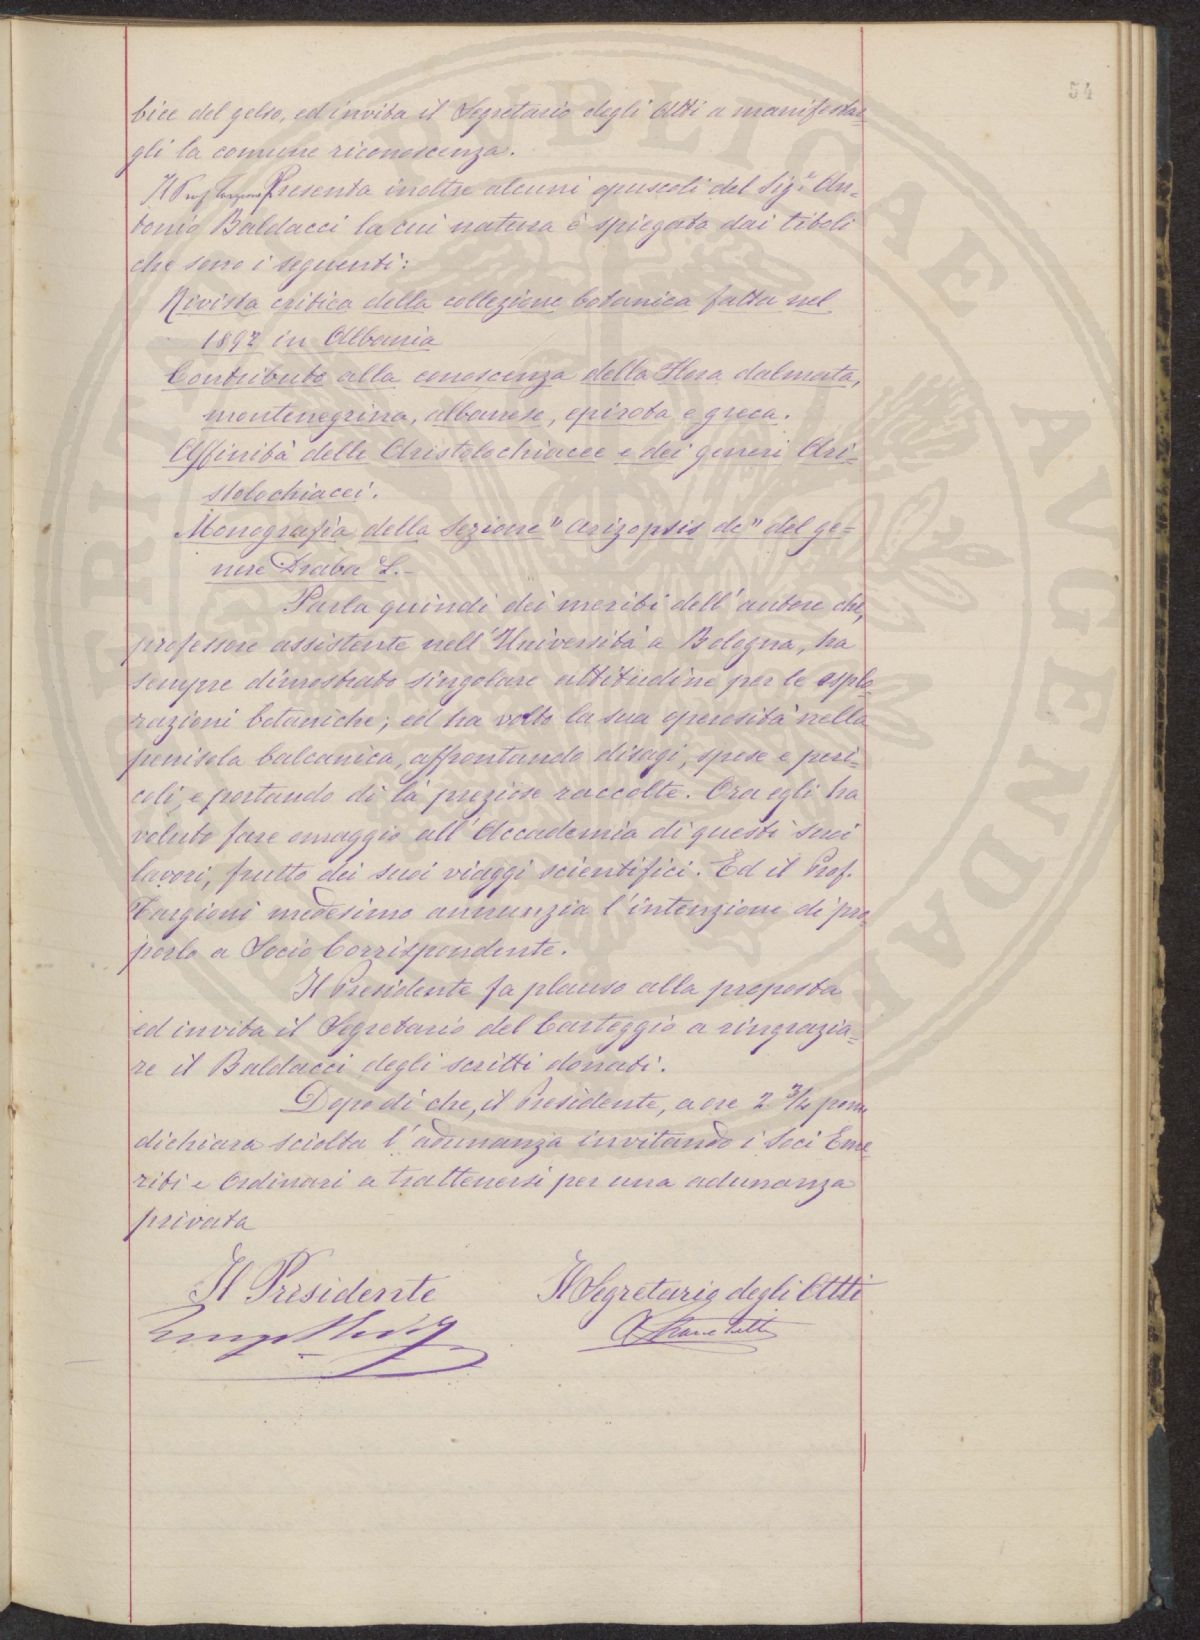 54
bice del gelso, ed invita il Segretario degli Atti a manifestar=
gli la comune riconoscenza.
Il Prof Targioni Presenta inoltre alcuni opuscoli del Sig.r An=
tonio Baldacci la cui natura è spiegata dai titoli
che sono i seguenti:
Rivista critica della collezione botanica fatta nel
1892 in Albania
Contributo alla conoscenza della Flora dalmata,
montenegrina, albanese, epirota e greca.
Affinità delle Aristolochiacee e dei generi Ari=
stolochiacei.
Monografia della Sezione "Aizopsis dc" del ge=
nere Draba L.-
Parla quindi dei meriti dell'autore che,
professore assistente nell'Università a Bologna, ha
sempre dimostrato singolare attitudine per le esplo=
razioni botaniche; ed ha volto la sua operosità nella
penisola balcanica, affrontando disagi, spese e peri=
coli, e portando di là preziose raccolte. Ora egli ha
voluto fare omaggio all'Accademia di questi suoi
lavori, frutto dei suoi viaggi scientifici. Ed il Prof.
Targioni medesimo annunzia l'intenzione di pro=
porlo a Socio Corrispondente.
Il Presidente fa plauso alla proposta
ed invita il Segretario del Carteggio a ringrazia=
re il Baldacci degli scritti donati.
Dopo di che, il Presidente, a ore 2 3/4 pom
dichiara sciolta l'adunanza invitando i Soci Eme
riti e Ordinari a trattenersi per una adunanza
privata
Il Presidente Il Segretario degli Atti